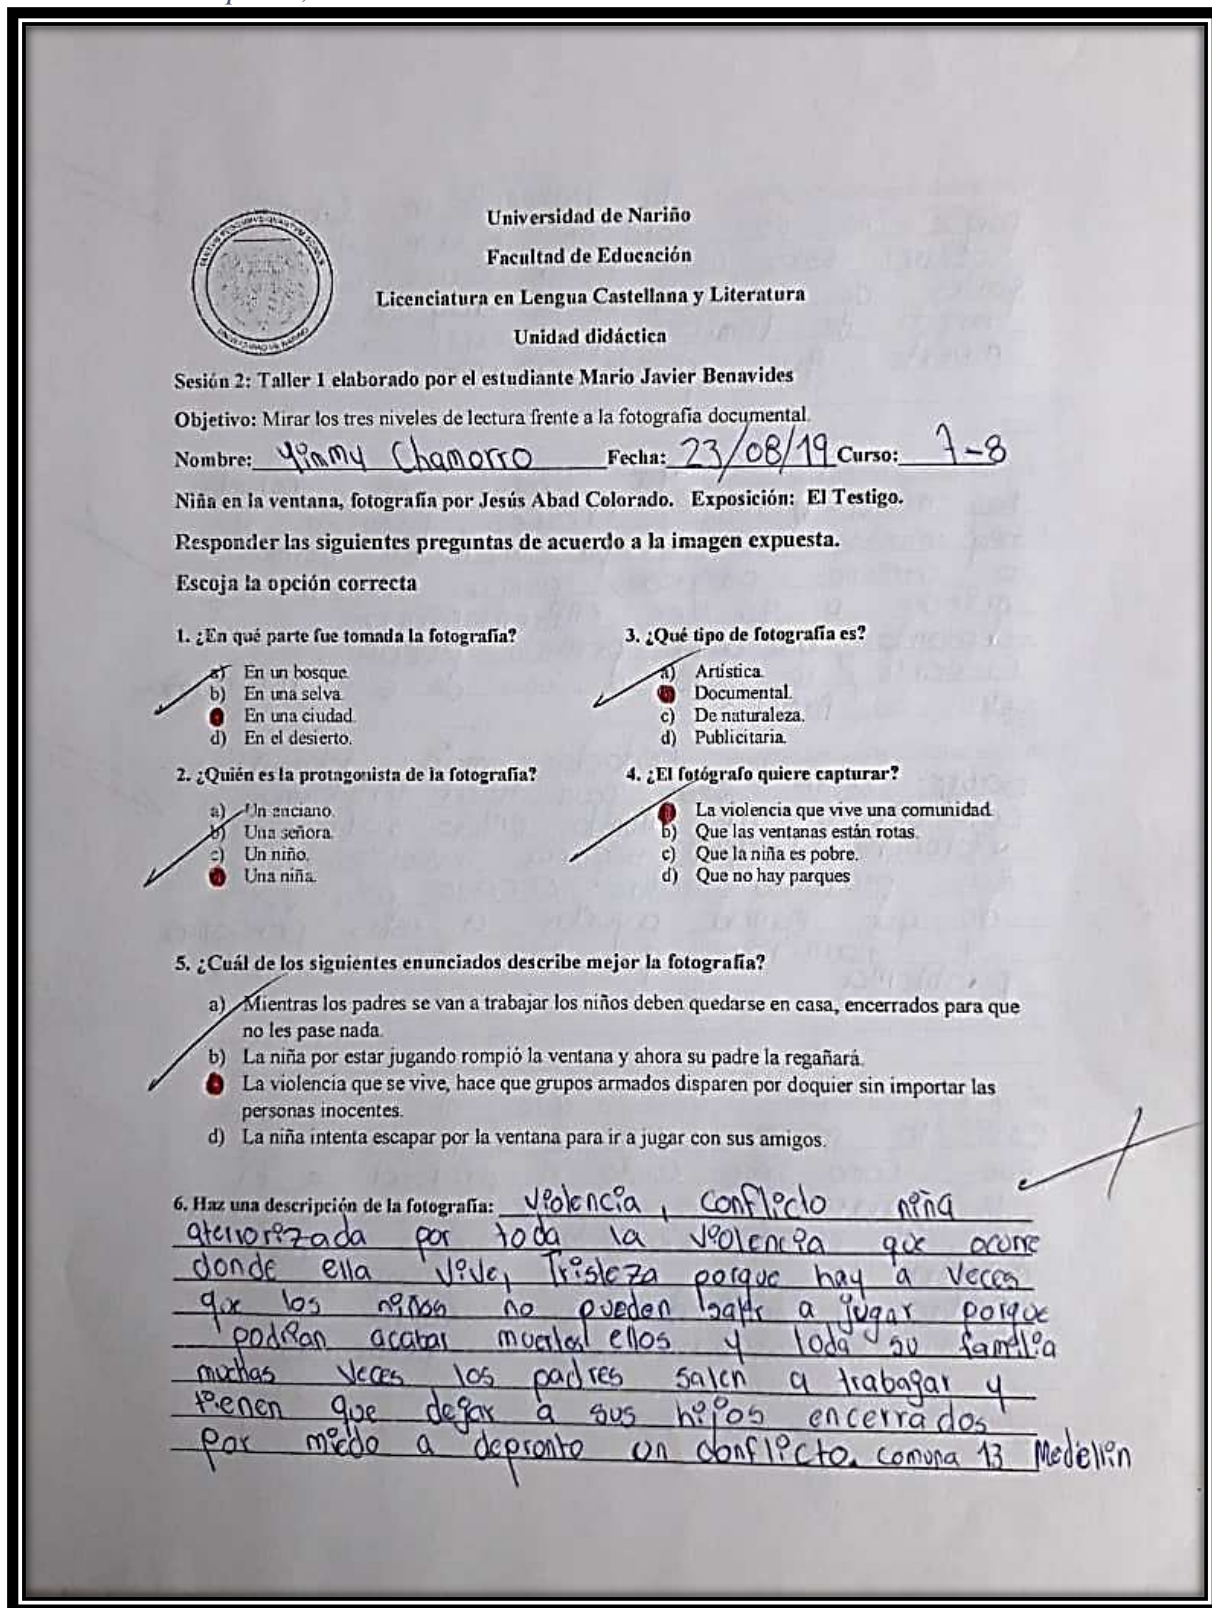 Universidad de Nariño
Facultad de Educación
Licenciatura en Lengua Castellana y Literatura
Unidad didáctica
Sesión 2: Taller 1 elaborado por el estudiante Mario Javier Benavides
Objetivo: Mirar los tres niveles de lectura frente a la fotografía documental.
Nombre: Yimmy Chamorro Fecha: 23/08/19 Curso: 7-8
Niña en la ventana, fotografía por Jesús Abad Colorado. Exposición: El Testigo.
Responder las siguientes preguntas de acuerdo a la imagen expuesta.
Escoja la opción correcta
1. ¿En qué parte fue tomada la fotografía?
a) En un bosque.
b) En una selva.
En una ciudad.
d) En el desierto.
2. ¿Quién es la protagonista de la fotografía?
a) Un anciano.
b) Una señora.
c) Un niño.
Una niña.
3. ¿Qué tipo de fotografía es?
a) Artística.
Documental.
c) De naturaleza.
d) Publicitaria.
4. ¿El fotógrafo quiere capturar?
La violencia que vive una comunidad.
b) Que las ventanas están rotas.
c) Que la niña es pobre.
d) Que no hay parques
5. ¿Cuál de los siguientes enunciados describe mejor la fotografía?
a) Mientras los padres se van a trabajar los niños deben quedarse en casa, encerrados para que
no les pase nada.
b) La niña por estar jugando rompió la ventana y ahora su padre la regañará.
La violencia que se vive, hace que grupos armados disparen por doquier sin importar las
personas inocentes.
d) La niña intenta escapar por la ventana para ir a jugar con sus amigos.
6. Haz una descripción de la fotografía: violencia, conflicto niña
aterrorizada por toda la violencia que ocurre
donde ella vive, Tristeza porque hay a veces
que los niños no pueden salir a jugar porque
podrian acabar muertos ellos y toda su familia
muchas veces los padres salen a trabagar y
tienen que degar a sus hijos encerrados
por miedo a depronto un conflicto. comuna 13 Medellin